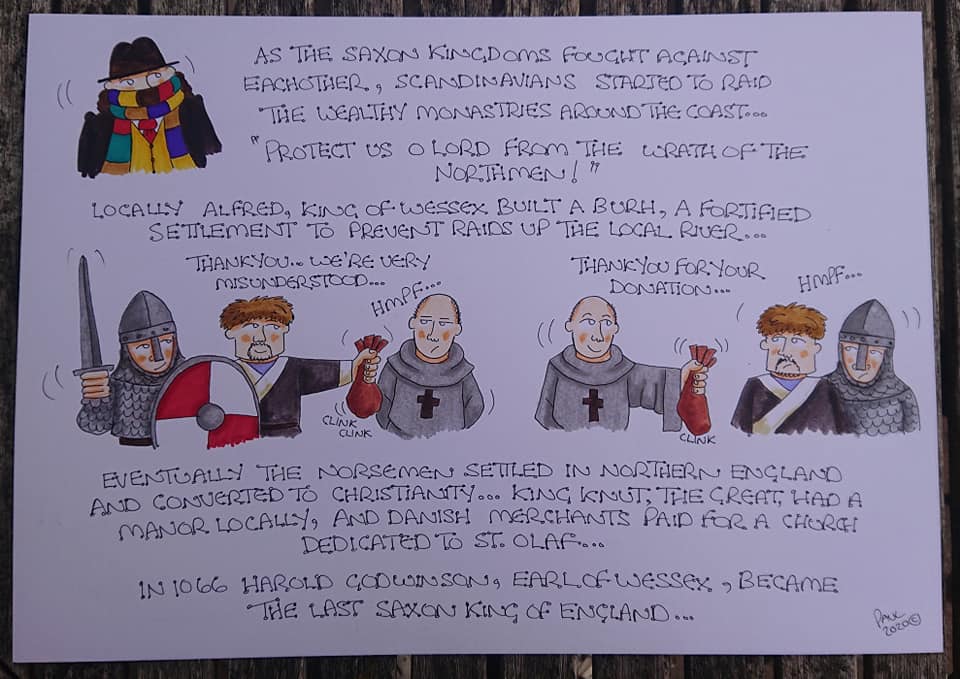 AS THE SAXON KINGDOMS FOUGHT AGAINST
EACHOTHER, SCANDINAVIANS STARTED TO RAID
THE WEALTHY MONASTRIES AROUND THE COAST...
"PROTECT US O LORD FROM THE WRATH OF THE
NORTHMEN!"
LOCALLY ALFRED, KING OF WESSEX BUILT A BURH, A FORTIFIED
SETTLEMENT TO PREVENT RAIDS UP THE LOCAL RIVER...
THANKYOU... WE'RE VERY
MISUNDERSTOOD...
HMPF...
CLINK
CLINK
THANKYOU FOR YOUR
DONATION...
HMPF...
CLINK
EVENTUALLY THE NORSEMEN SETTLED IN NORTHERN ENGLAND
AND CONVERTED TO CHRISTIANITY... KING KNUT, THE GREAT, HAD A
MANOR LOCALLY, AND DANISH MERCHANTS PAID FOR A CHURCH
DEDICATED TO ST. OLAF...
IN 1066 HAROLD GODWINSON, EARL OF WESSEX, BECAME
THE LAST SAXON KING OF ENGLAND...
PAUL
2020©